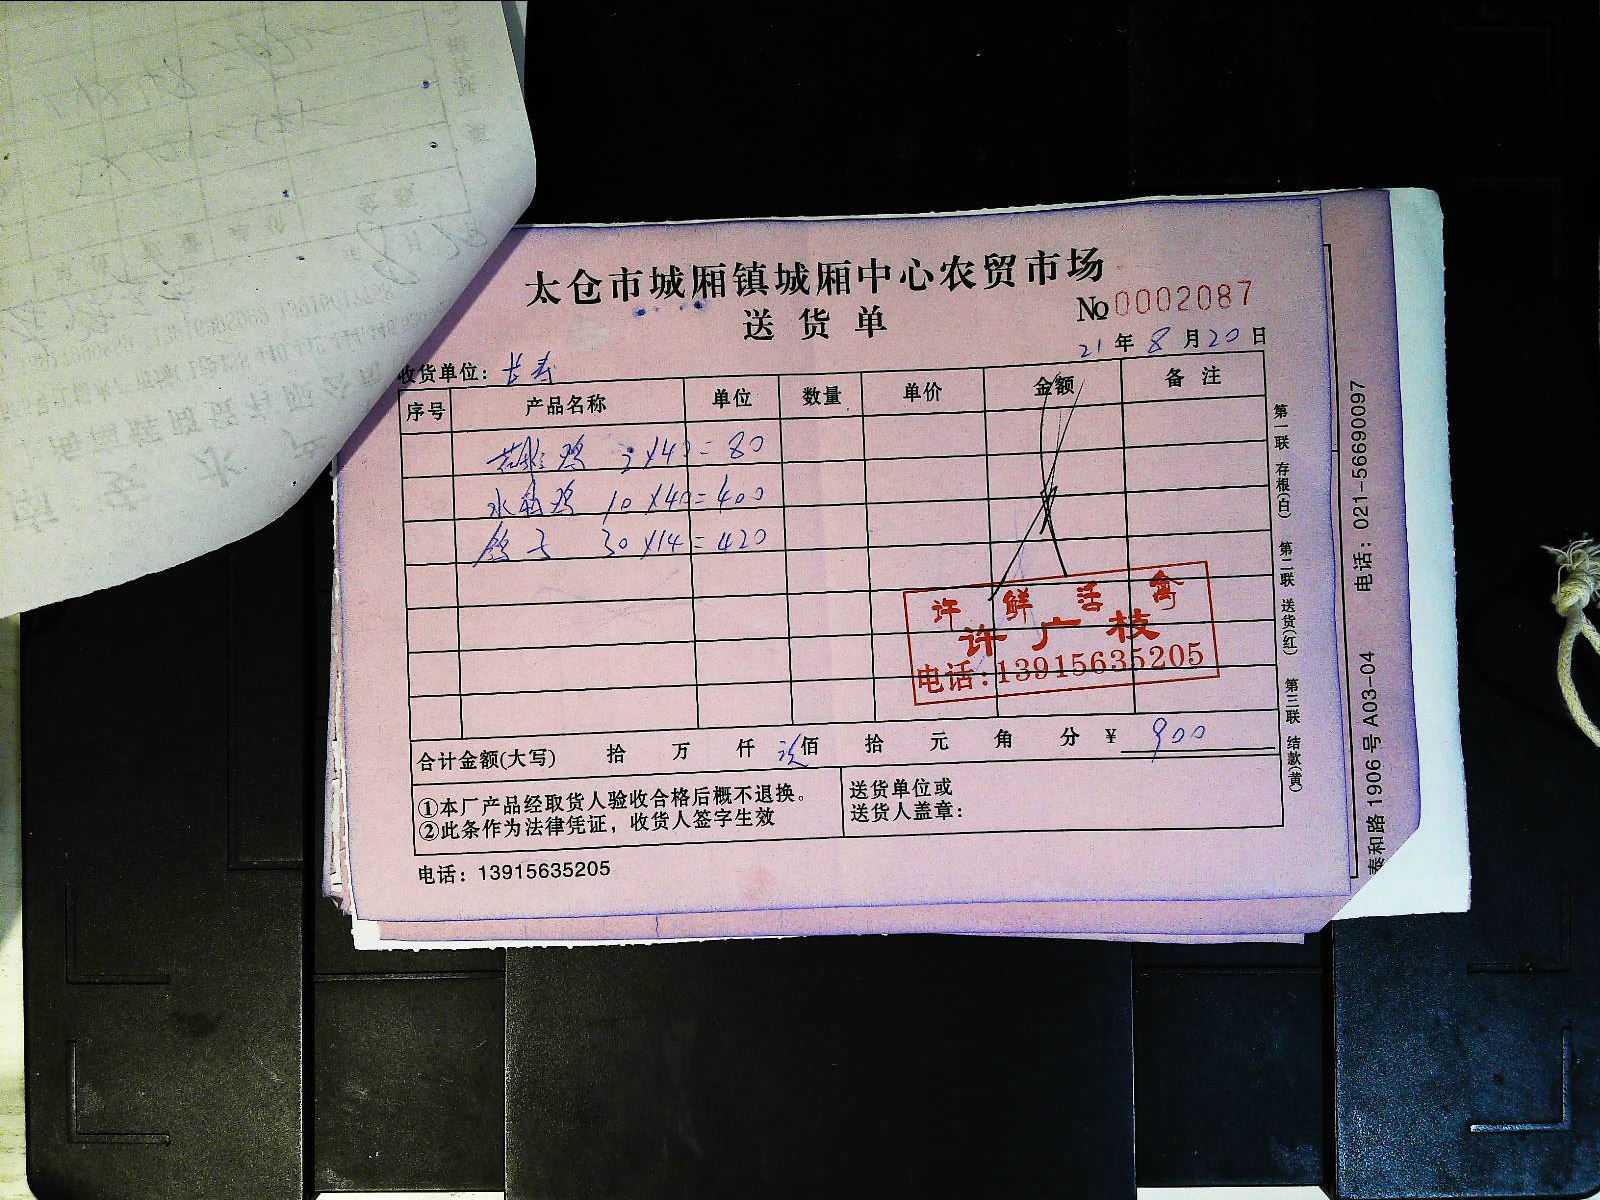 太仓市城厢镇城厢中心农贸市场
送货单
No 0002087
21年8月20日
收货单位：长寿
序号 产品名称 单位 数量 单价 金额 备注
鸡 2×40=80
水 鸡 10×40=400
鸽子 30×14=420
许鲜活禽
许广枝
电话:13915635205
合计金额(大写) 拾 万 仟 玖佰 拾 元 角 分 ¥ 900
①本厂产品经取货人验收合格后概不退换。
②此条作为法律凭证，收货人签字生效
送货单位或
送货人盖章：
电话：13915635205
第一联 存根(白) 第二联 送货(红) 第三联 结款(黄)
泰和路1906号A03-04 电话：021-56690097